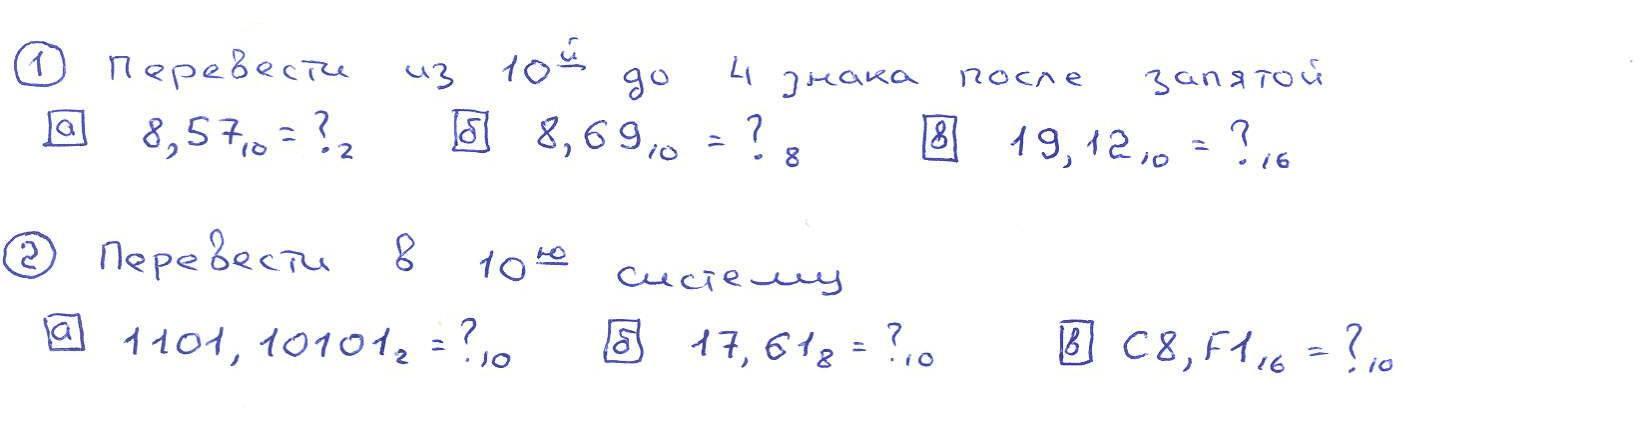 ① Перевести из 10й до 4 знака после запятой
а 8,57₁₀ = ?₂ б 8,69₁₀ = ?₈ в 19,12₁₀ = ?₁₆
② Перевести в 10ю систему
а 1101,10101₂ = ?₁₀ б 17,61₈ = ?₁₀ в C8,F1₁₆ = ?₁₀